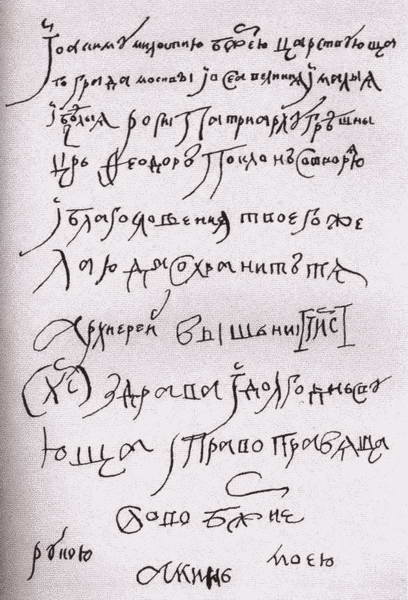 Іоакиму милостию бжею царствующа
го града москвы і всеа великия і малыя
і бѣлыя росиі патриарху грѣшны
црь Ѳеодоръ поклонъ сотворю
і благословения твоего же
лаю да сохранитъ тя
архиерей вышьниі [Іис]
(Хс) здрава і долгоденьсву
юща і право правяща
слово бжие
рукою моею
аминь